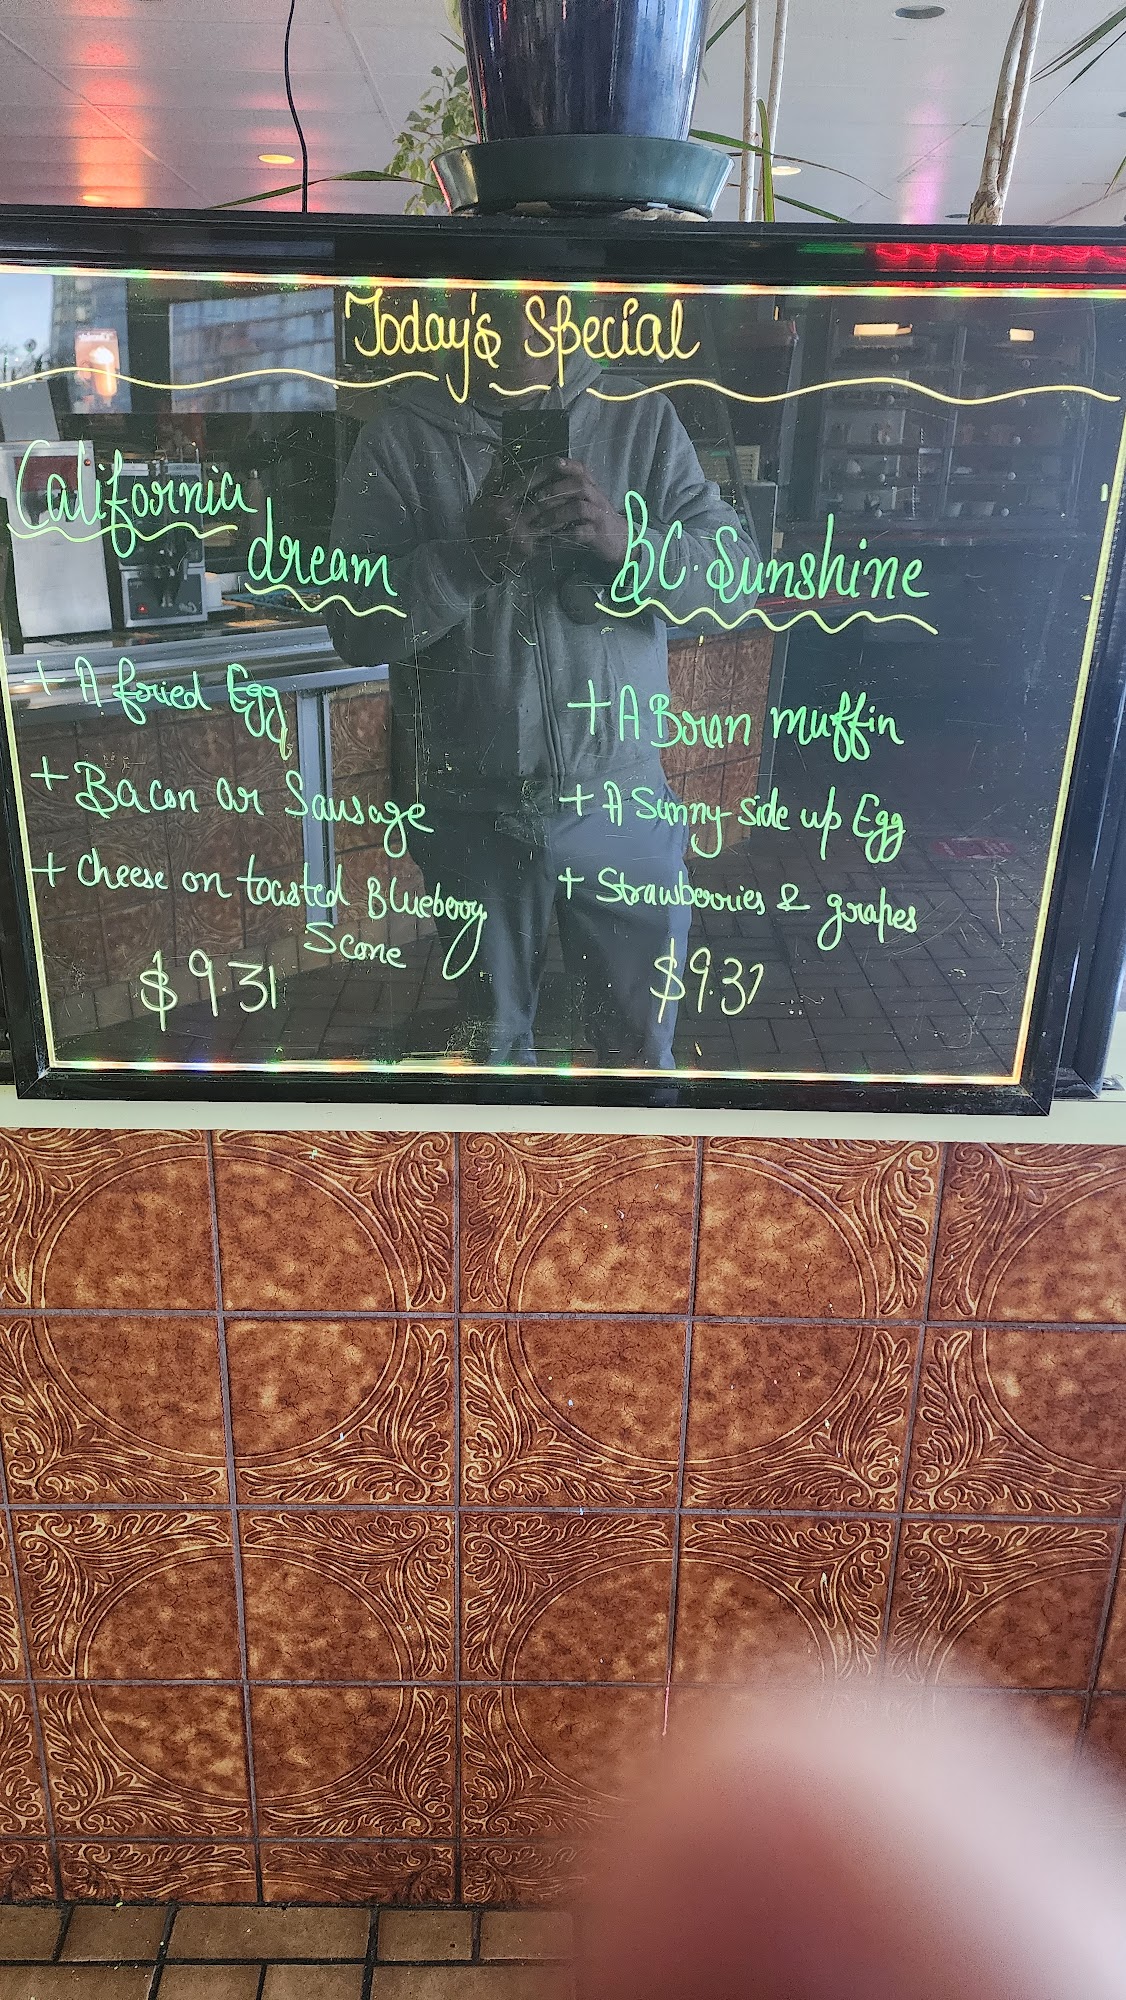 Today's Special
California
dream
+ A fried Egg
+ Bacon or Sausage
+ Cheese on toasted Blueberry
Scone
$9.31
BC. Sunshine
+ A Bran muffin
+ A Sunny side up Egg
+ Strawberries & grapes
$9.37